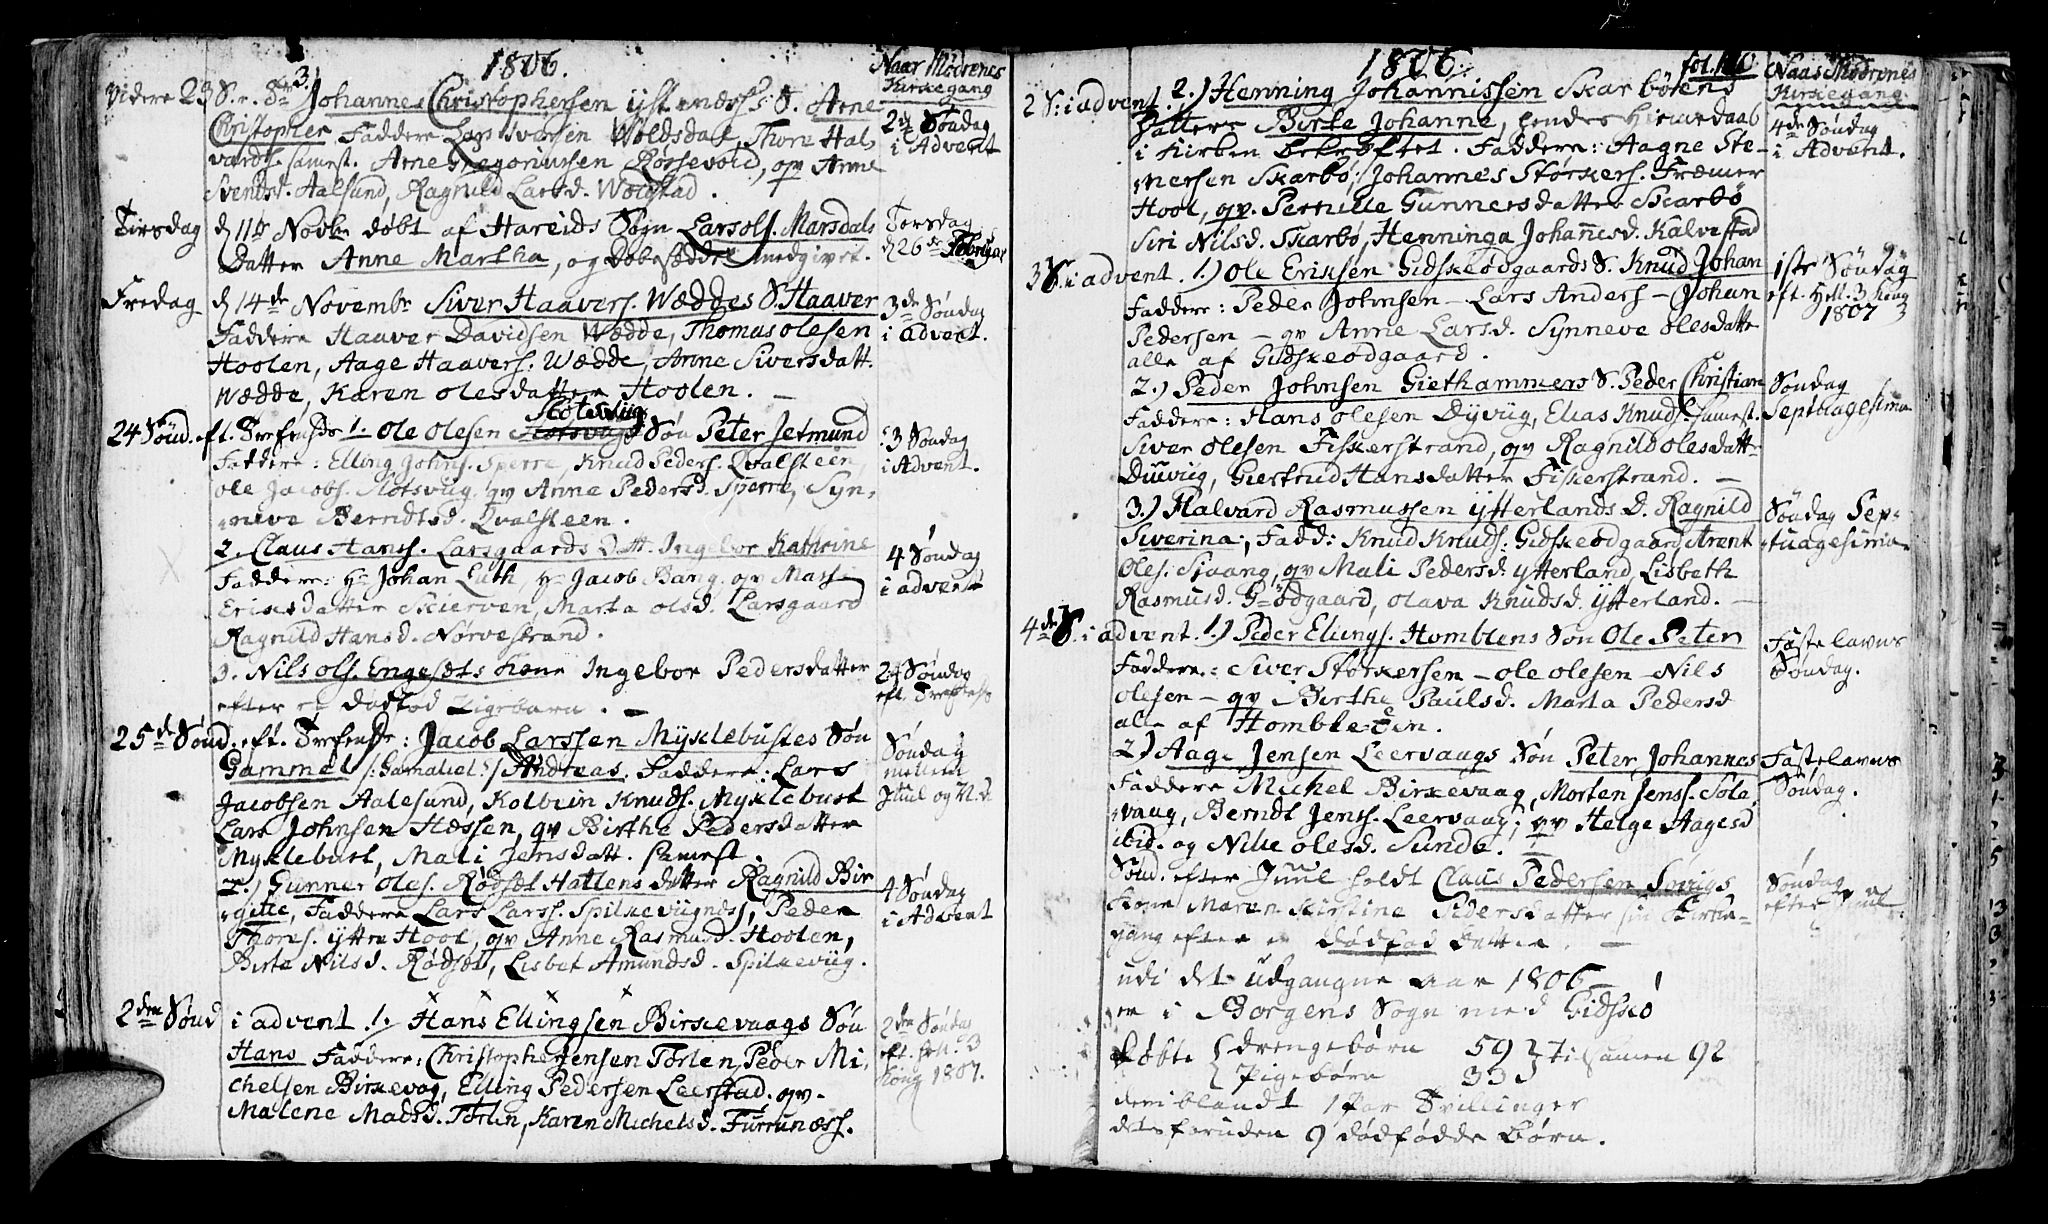 1806.
Naar Mødrenes
Kirkegang
videre 23 S. e. Tr. 3) Johannes Christophersen S. Arne
Christopher Faddere Lars Iversen Woldsdal, Thore Hal-
vards. samest. Arne Gregoriussen Røssevold, qv Anne
Svendsd. Aalesund, Ragnild Larsd. Wolgstad.
2den Søndag
i Advent
Tirsdag d 11te Novbr døbt af Hareids Sogn Lars Ols. Marsdals
Datter Anne Martha, og Døbesedde medgivet.
Torsdag
d 26de Februar
Fredag d 14de Novembr Siver Haavers. Wæddes S. Haaver
Faddere Haaver Davidsen Wædde, Thomas Olesen
Hoolen, Aage Haavers. Wædde, Anne Siversdatt.
Wædde, Karen Olesdatter Hoolen.
3de Søndag
i advent.
Slotsviig
24 Sønd. eft. Trefends 1. Ole Olesen Søn Peter Jetmund
Faddere: Elling Johns. Sperre, Knud Peders. Qvalsteen,
Ole Jacobs. Slotsviig qv Anne Pedersd. Sperre, Syn-
neve Berndtsd. Qvalsteen.
3 Søndag
i Advent.
2. Claus Hanss. Larsgaards Datt. Ingebor Kathrine
Faddere: Hr Johan Luth, Hr Jacob Bang. qv Mass
Eriksdatter Skierven, Marta Olsd. Larsgaard
Ragnild Hansd. Nørvestrand.
4 Søndag
i advent
3. Nils Ols. Engesæts Kone Ingebor Pedersdatter
efter et dødfød Pigebarn.
24 Søndag
eft. Trefends
25de Sønd. eft. Trefends: Jacob Larssen Myklebustes Søn
Gammel /: Gamaliel :/ Andreas. Faddere: Lars
Jacobsen Aalesund, Kolbein Knuds. Myklebust
Lars Johnsen Hessen, qv Birthe Pedersdatter
Myklebust, Mali Jensdatt. samest.
Søndag
mellem
Juul og N. A.
2.) Gunner Oles. Rødset Hatlens datter Ragnild Bir
gitte, Faddere Lars Larss. Spilkeviignes, Peder
Thores. Yttre Hool, qv Anne Rasmusd. Hoolen,
Birte Nilsd. Rødset, Lisbet Amundsd. Spilkeviig.
4 Søndag
i Advent
2den Sønd i advent. 1. Hans Ellingsen Birkevaags Søn
Hans Faddere: Christopher Jensen Torlen, Peder Mi-
chelsen Birkevog, Elling Pedersen Leerstad. qv.
Malene Madsd. Torlen, Karen Michelsd. Furrunæss.
2den Søndag
eft. Hell. 3
Kong 1807.
1806.
fol. 110
Naar Mødrenes
Kirkegang.
2 S: i advent. 2.) Henning Johannissen Skarbøens
Datter Birte Johanne, hendes Hiemedaab
i Kirken bekræftet. Faddere: Aagne Ste-
nersen Skarbø, Johannes Størkers. Fræmer
Hool, qv. Pernille Gunnersdatter Skarbø
Siri Nilsd. Skarbø, Henninga Johanesd. Kalvestad
4de Søndag
i Advent.
3 S. i advent. 1.) Ole Eriksen Gidskeødgaards S. Knud Johan
Faddere: Peder Johnsen - Lars Anders - Johan
Pedersen - qv Anne Larsd. Synneve Olesdatte
alle af Gidskeødgaard.
1ste Søndag
eft. Hell. 3 Kong
1807
2.) Peder Johnsen Giethammers S. Peder Christian
Faddere: Hans Olesen Dyviig, Elias Knuds. samest.
Siver Olesen Fiskerstrand, qv Ragnild Olesdatt-
Duiviig, Giertrud Hansdatter Fiskerstrand.
Søndag
Septuagesima
3.) Halvard Rasmussen Ytterlands D. Ragnild
Siverina, Fadd: Knud Knuds: Gidskeødgaard Arent
Oles: Siaang, qv Mali Pedersd: Ytterland, Lisbeth
Rasmusd. G-ødgaard, Olava Knudsd. Ytterland.
Søndag Sep-
tuagesima
4de S. i advent. 1.) Peder Ellings. Homblens Søn Ole Peter
Faddere: Siver Størkersen - Ole Olesen - Nils
Olesen - qv Birthe Paulsd. Marta Pedersd
alle af Homble-en.
Fastelavns
Søndag.
2) Aage Jensen Leervaags Søn Peter Johannes
Faddere Michel Birkevaag, Morten Jenss. Sole
vaag, Berndt Jens. Leervaag; qv Helge Aagesd
ibid. og Nille Olesd. Sunde.
Fastelavns
Søndag.
Sønd. efter Juul holdt Claus Pedersen Sørigs
Kone Maren Kirstine Pedersdatter sin Kirke-
gang efter en dødfød datter.
Søndag
efter Juul
udi det udgangne aar 1806
er i Borgens Sogn med Gidskø
døbte { drengebørn 59 } tilsamen 92
Pigebørn 33
deriblandt 1 Par Tvillinger
desforuden 9 dødfødde børn.